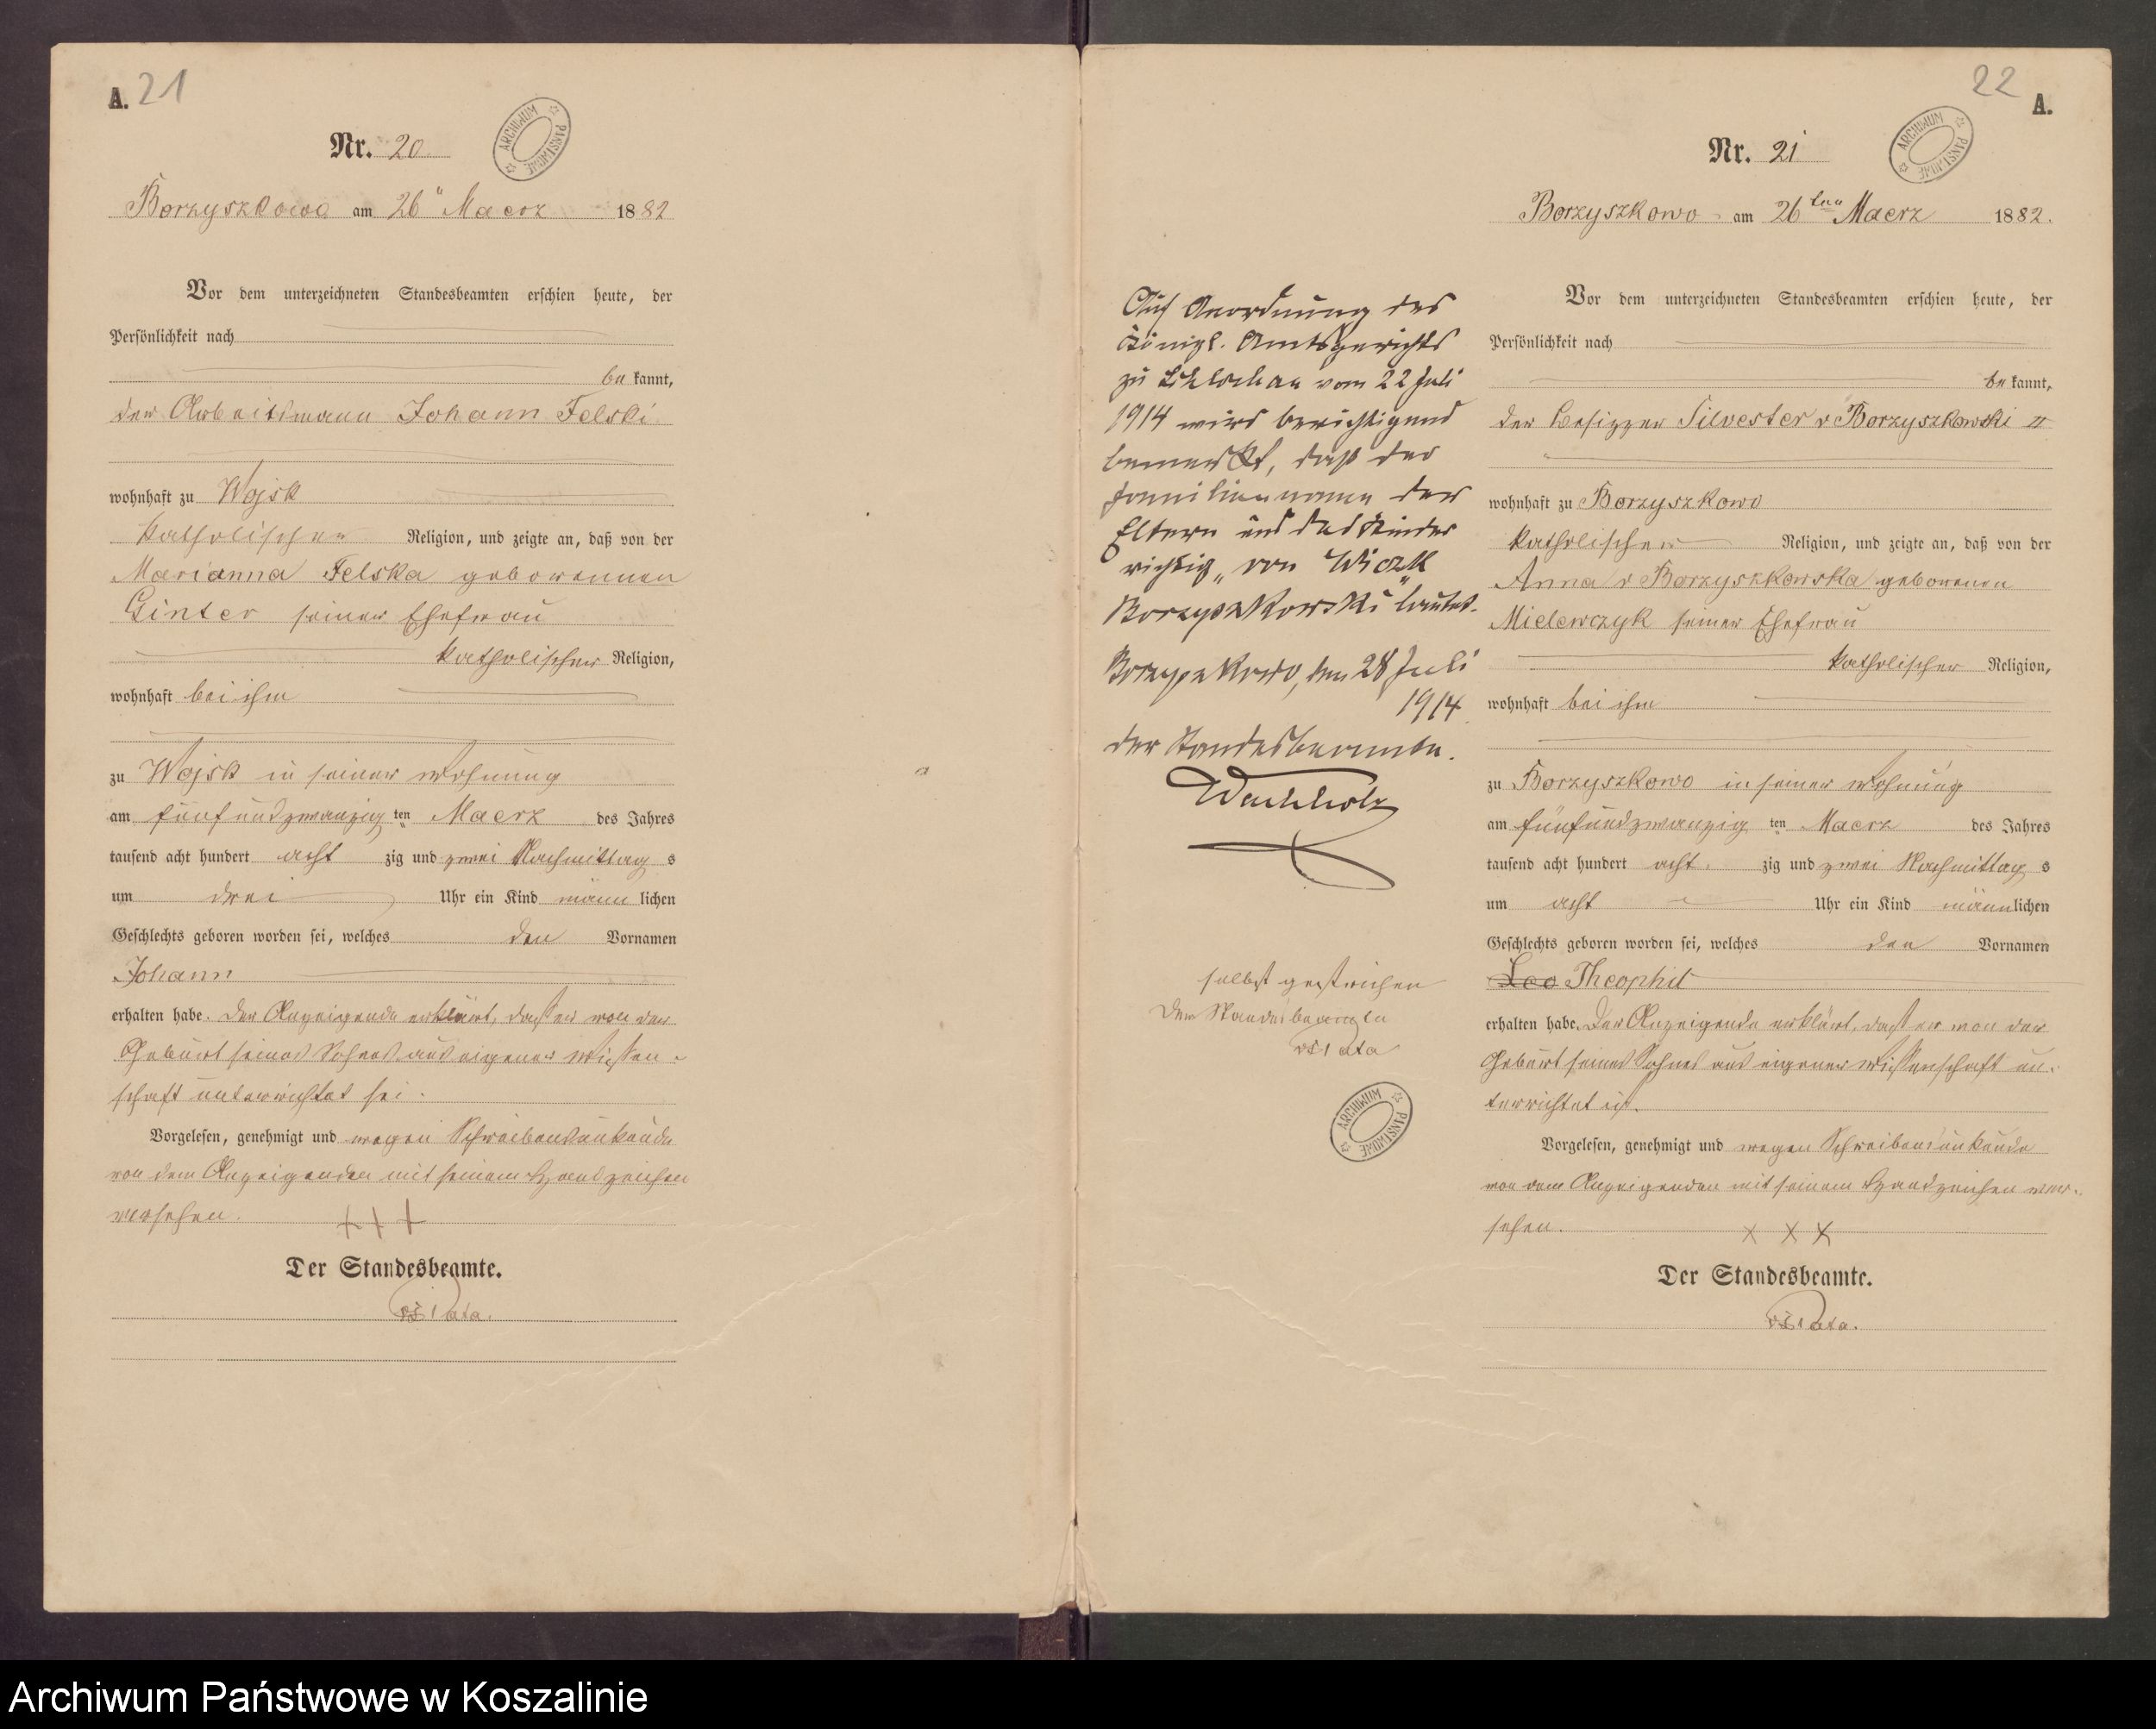 A. 21
ARCHIWUM PAŃSTWOWE
Nr. 20
Borzyszkowo am 26 Maerz 1882
Vor dem unterzeichneten Standesbeamten erschien heute, der
Persönlichkeit nach
be kannt,
der Arbeitsmann Johann Felski
wohnhaft zu Wojsk
katholischer Religion, und zeigte an, daß von der
Marianna Felska geborennen
Ginter seiner Ehefrau
katholischer Religion,
wohnhaft bei ihm
zu Wojsk in seiner Wohnung
am fünfundzwanzig ten Maerz des Jahres
tausend acht hundert acht zig und zwei Nachmittag s
um drei Uhr ein Kind männ lichen
Geschlechts geboren worden sei, welches den Vornamen
Johann
erhalten habe. Der Anzeigende erklärt, dasser von der
Geburt seines Sohnes aus eigener Wissen-
schaft unterrichtet sei.
Vorgelesen, genehmigt und wegen Schreibensunkunde
von dem Anzeigenden mit seinem Handzeichen
versehen. + + +
Der Standesbeamte.
22 A.
ARCHIWUM PAŃSTWOWE
Nr. 21
Borzyszkowo am 26ten Maerz 1882.
Vor dem unterzeichneten Standesbeamten erschien heute, der
Persönlichkeit nach
be kannt,
der Besizzer Silvester v Borzyszkowski II
wohnhaft zu Borzyszkowo
katholischer Religion, und zeigte an, daß von der
Anna v Borzyszkowska geborenen
Mielewczyk seiner Ehefrau
katholischer Religion,
wohnhaft bei ihm
zu Borzyszkowo in seiner Wohnung
am fünfundzwanzig ten Maerz des Jahres
tausend acht hundert acht zig und zwei Nachmittag s
um acht Uhr ein Kind männlichen
Geschlechts geboren worden sei, welches den Vornamen
Leo Theophil
erhalten habe. Der Anzeigende erklärt, dasser von der
Geburt seines Sohnes aus eigener Wissenschaft un-
terrichtet ist.
Vorgelesen, genehmigt und wegen Schreibensunkunde
von dem Anzeigenden mit seinem Handzeichen ver-
sehen. x x x
Der Standesbeamte.
Auf Anordnung des
Königl. Amtsgerichts
zu Schlochau vom 22 Juli
1914 wird berichtigend
bemerkt, daß der
Familienname der
Eltern und des Kindes
richtig „von Wiczk
Borzyszkowski" lautet.
Borzyszkowo, den 28 Juli
1914.
der Standesbeamte.
selbst gestrichen
Der Standesbeamte
ARCHIWUM PAŃSTWOWE
Archiwum Państwowe w Koszalinie